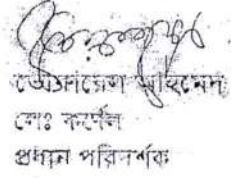 আহমেদ
লেঃ কর্ণেল
প্রধান পরিদর্শক